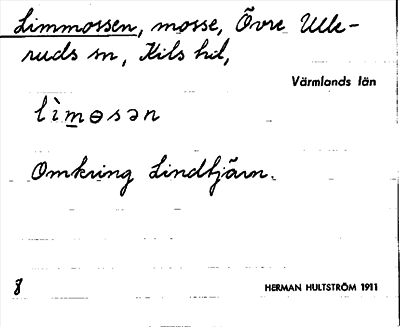 Limmossen, mosse, Övre Ulle-
ruds sn, Kils hd,
Värmlands län
lìm̲ɵsən
Omkring Lindtjärn.
8
HERMAN HULTSTRÖM 1911